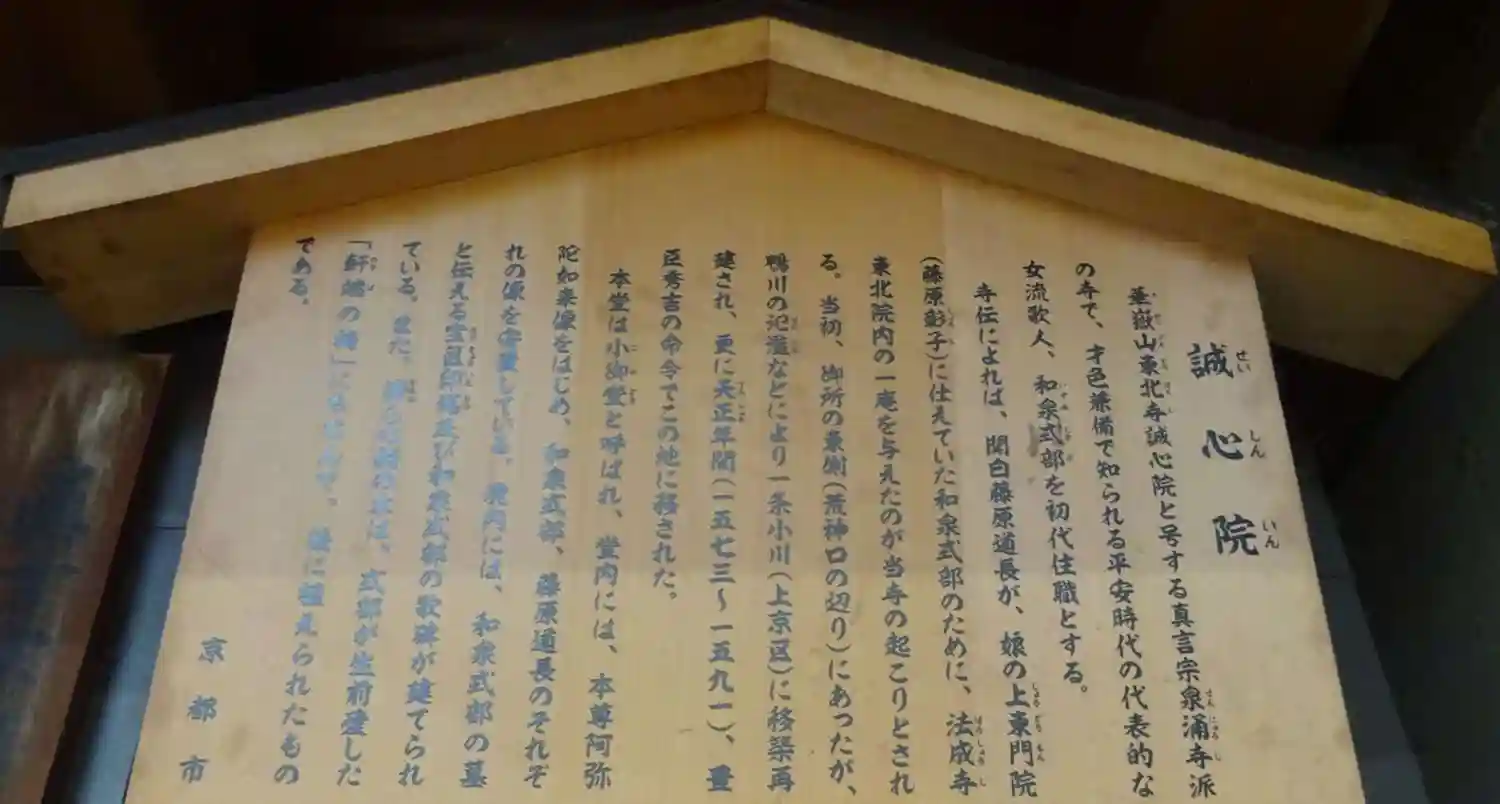 誠心院
華嶽山東北寺誠心院と号する真言宗泉涌寺派
の寺で、才色兼備で知られる平安時代の代表的な
女流歌人、和泉式部を初代住職とする。
寺伝によれば、関白藤原道長が、娘の上東門院
(藤原彰子)に仕えていた和泉式部のために、法成寺
東北院内の一庵を与えたのが当寺の起こりとされ
る。当初、御所の東側(荒神口の辺り)にあったが、
鴨川の氾濫などにより一条小川(上京区)に移築再
建され、更に天正年間(一五七三〜一五九一)、豊
臣秀吉の命令でこの地に移された。
本堂は小御堂と呼ばれ、堂内には、本尊阿弥
陀如来像をはじめ、和泉式部、藤原道長のそれぞ
れの像を安置している。境内には、和泉式部の墓
と伝える宝篋印塔及び和泉式部の歌碑が建てられ
ている。また、の は、式部が生前愛した
「軒端の梅」に 、後に植えられたもの
である。
京都市